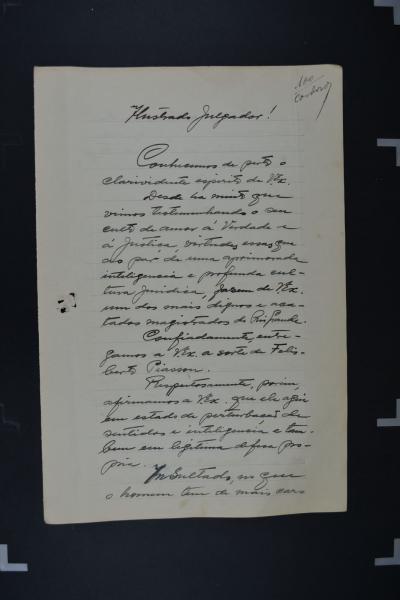 Illustrado Julgador!
Conhecemos de perto o
clarividente espirito de V. Ex.
Desde ha muito que
vimos testimunhando o seu
culto de amor á Verdade e
á Justiça, virtudes essas que
ao par de uma aprimorada
intelligencia e profunda cul-
tura Juridica, fazem de V. Ex.
um dos mais dignos e aca-
tados magistrados do Rio Grande.
Confiadamente, entre-
gamos a V. Ex. a sorte de Felis-
berto Piasson.
Respeitosamente, porim,
afirmamos a V. Ex. que ele agiu
em estado de perturbação de
sentidos e inteligencia e tam-
bem em legitima defesa pro-
pria.
Insultado, no que
o homem tem de mais caro